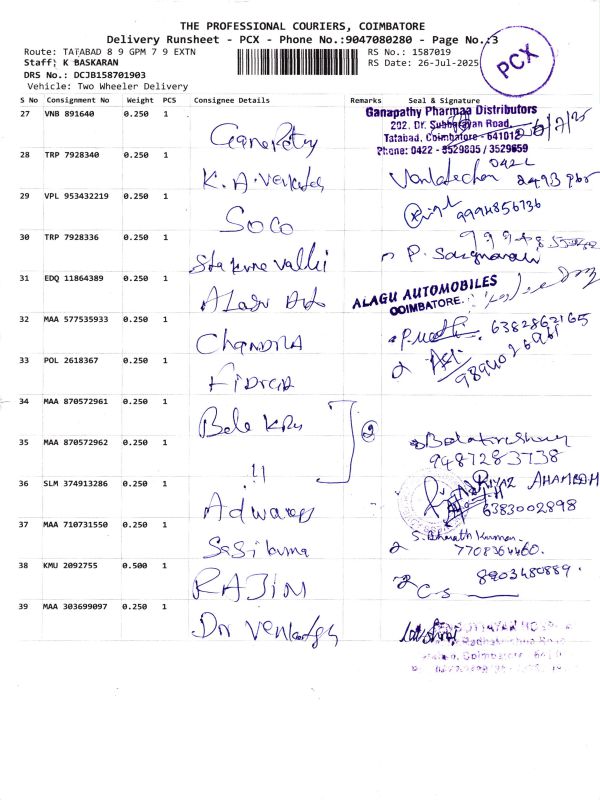 THE PROFESSIONAL COURIERS, COIMBATORE
Delivery Runsheet - PCX - Phone No.:9047080280 - Page No.:3
Route: TATABAD 8 9 GPM 7 9 EXTN RS No.: 1587019
Staff: K BASKARAN RS Date: 26-Jul-2025
DRS No.: DCJB158701903
Vehicle: Two Wheeler Delivery
PCX
S No Consignment No Weight PCS Consignee Details Remarks Seal & Signature
27 VNB 891640 0.250 1
Ganapathy Pharmaa Distributors
202, Dr. Subbarayan Road,
Tatabad, Coimbatore - 641012
Phone: 0422 - 3529805 / 3529859
28 TRP 7928340 0.250 1 K.A. Venkates
0422
2493
29 VPL 953432219 0.250 1 SOCO
9994856736
30 TRP 7928336 0.250 1
31 EDQ 11864389 0.250 1
ALAGU AUTOMOBILES
COIMBATORE.
32 MAA 577535933 0.250 1 Chandra
6382862165
33 POL 2618367 0.250 1
34 MAA 870572961 0.250 1 2
35 MAA 870572962 0.250 1 "
9487283738
36 SLM 374913286 0.250 1
RIYAZ AHAMEDH
6383002898
37 MAA 710731550 0.250 1 Sasikuma
S. Bharath Kumar
7708364460.
38 KMU 2092755 0.500 1 RAJIM
2 C-S 8903480889.
39 MAA 303699097 0.250 1 Dr Venkatesh